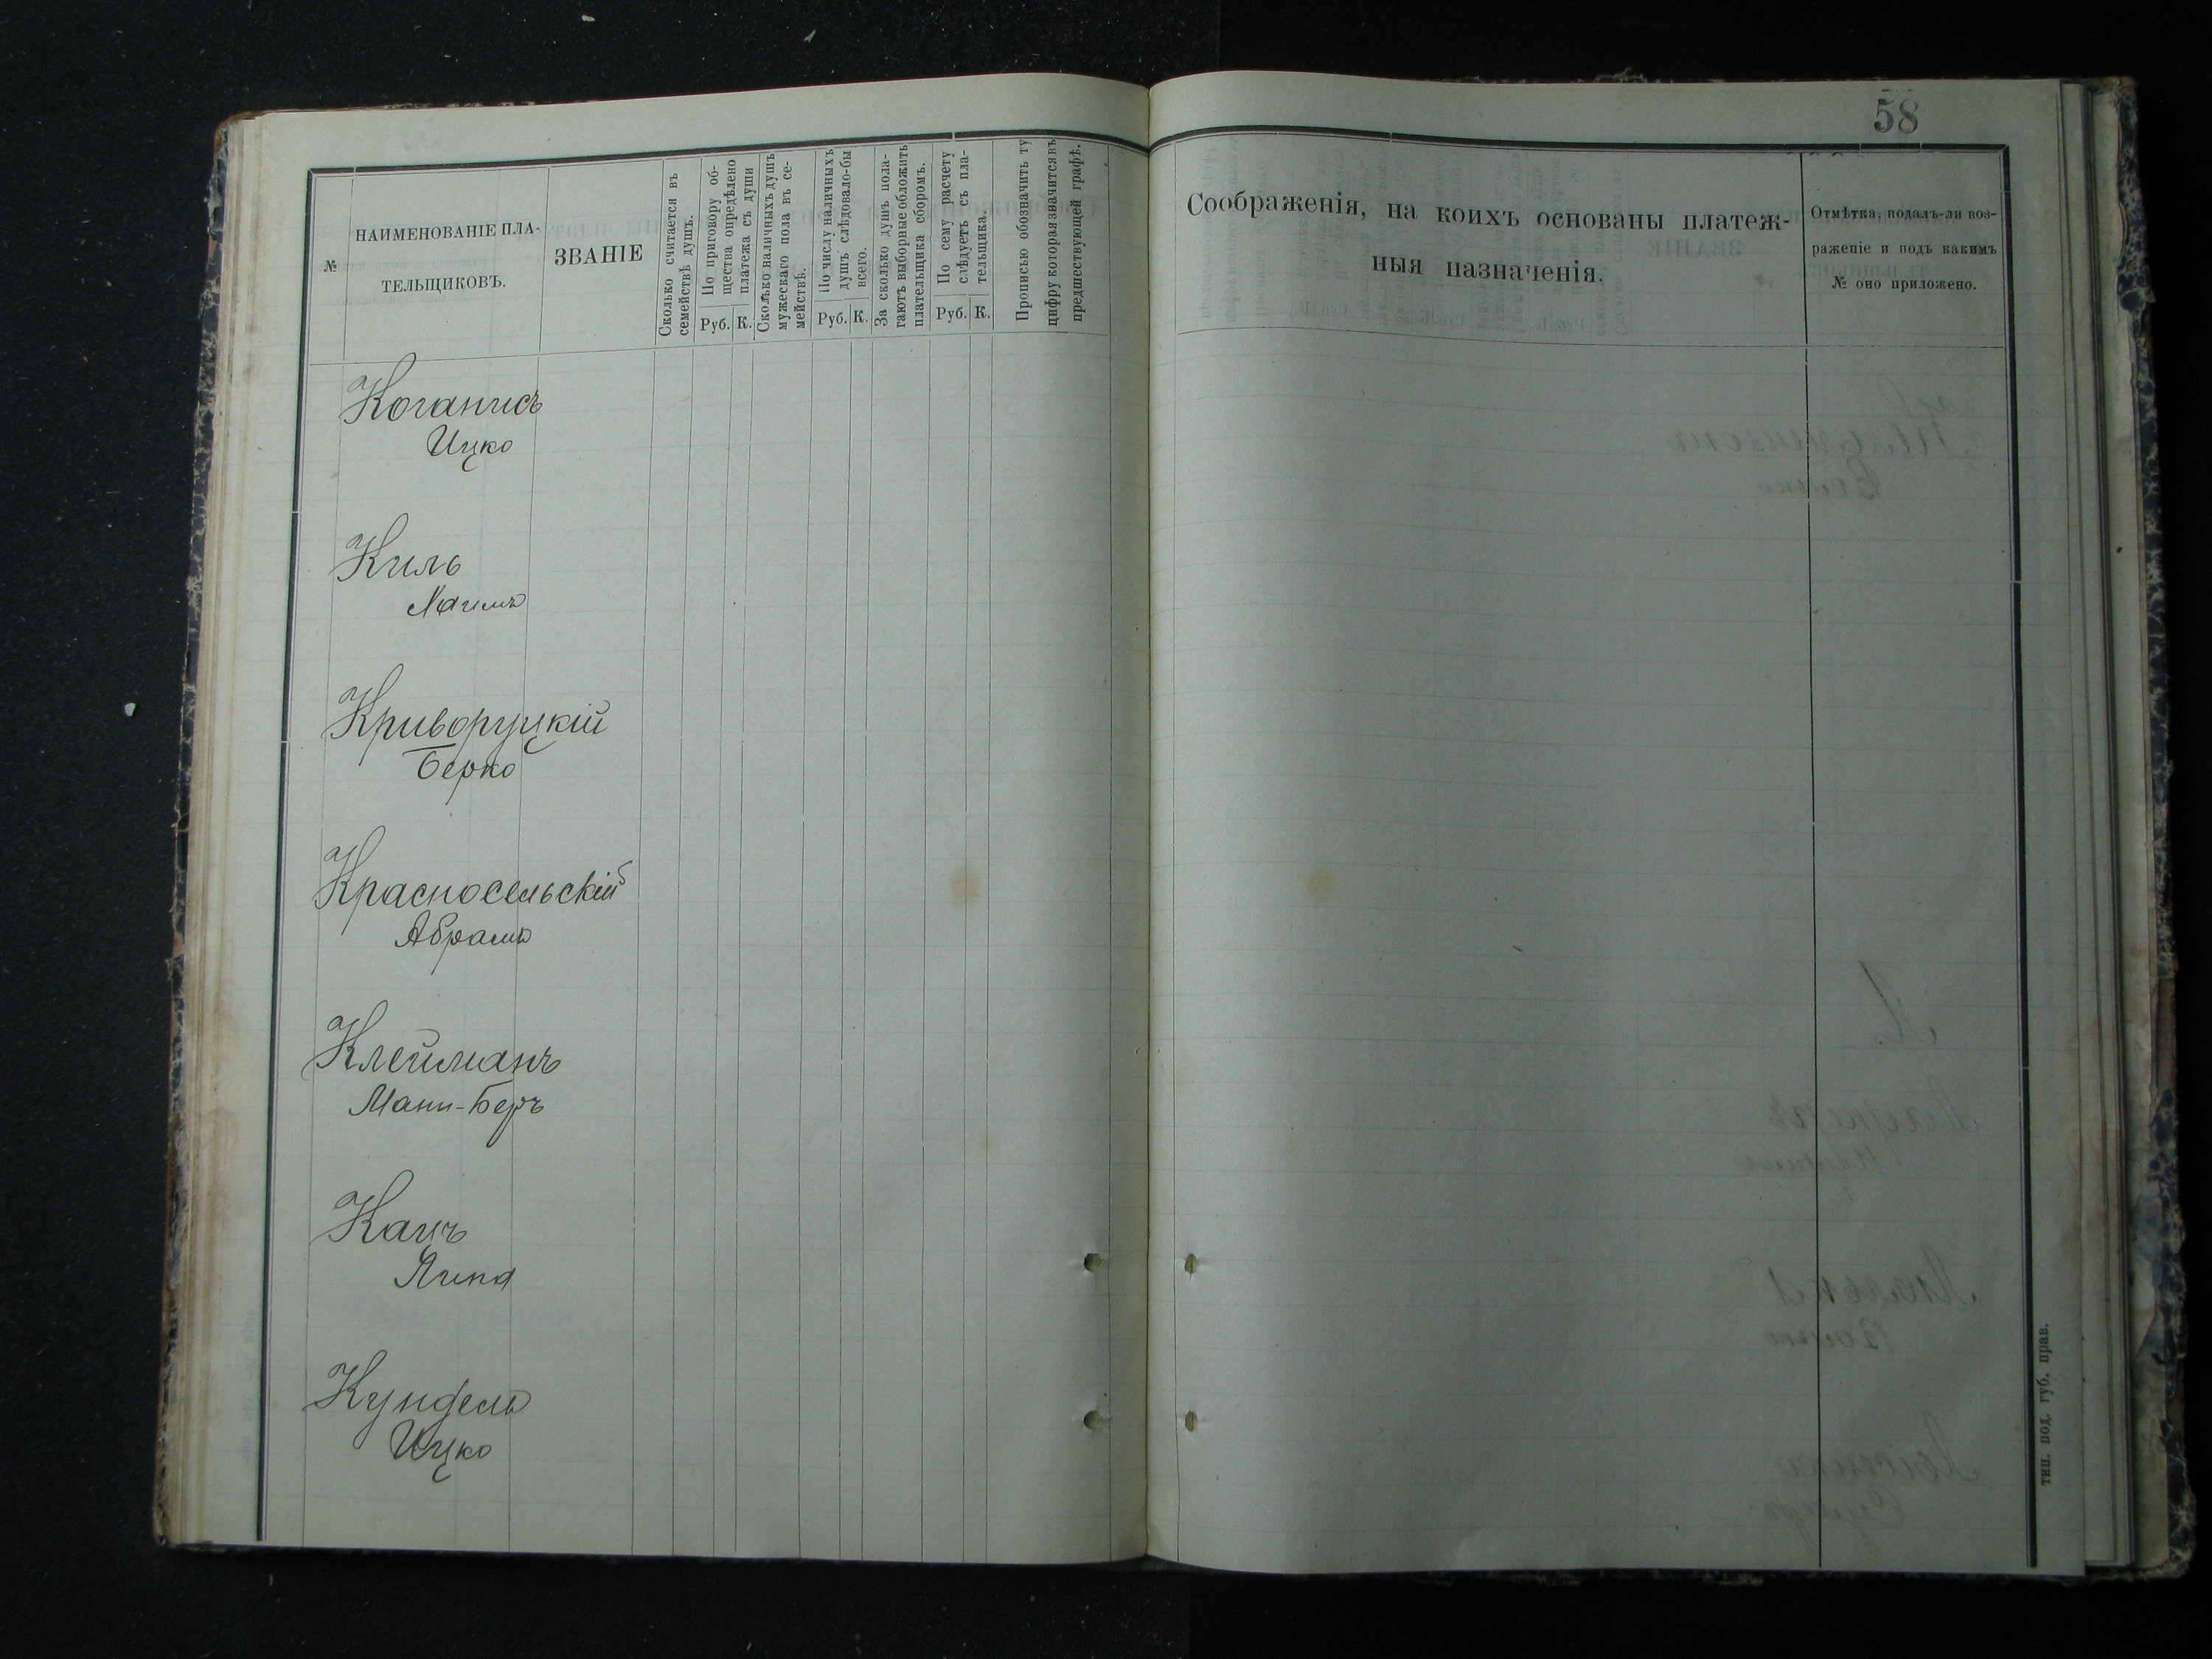 58
№
НАИМЕНОВАНІЕ ПЛА-
ТЕЛЬЩИКОВЪ.
ЗВАНІЕ
Сколько считается въ
семействѣ душъ.
По приговору об-
щества опредѣлено
платежа съ души
Руб. К.
Сколько наличныхъ душъ
мужескаго пола въ се-
мействѣ.
По числу наличныхъ
душъ слѣдовало-бы
всего.
Руб. К.
За сколько душъ пола-
гаютъ выборные обложить
плательщика сборомъ.
По сему расчету
слѣдуетъ съ пла-
тельщика.
Руб. К.
Прописью обозначить ту
цифру которая значится въ
предшествующей графѣ.
Соображенія, на коихъ основаны платеж-
ныя назначенія.
Отмѣтка, подалъ-ли воз-
раженіе и подъ какимъ
№ оно приложено.
Коганисъ
Ицко
Киль
Криворуцкій
Берко
Красносельскій
Абрамъ
Клейманъ
Мани-Беръ
Кацъ
Кундель
Ицко
тип. под. губ. прав.